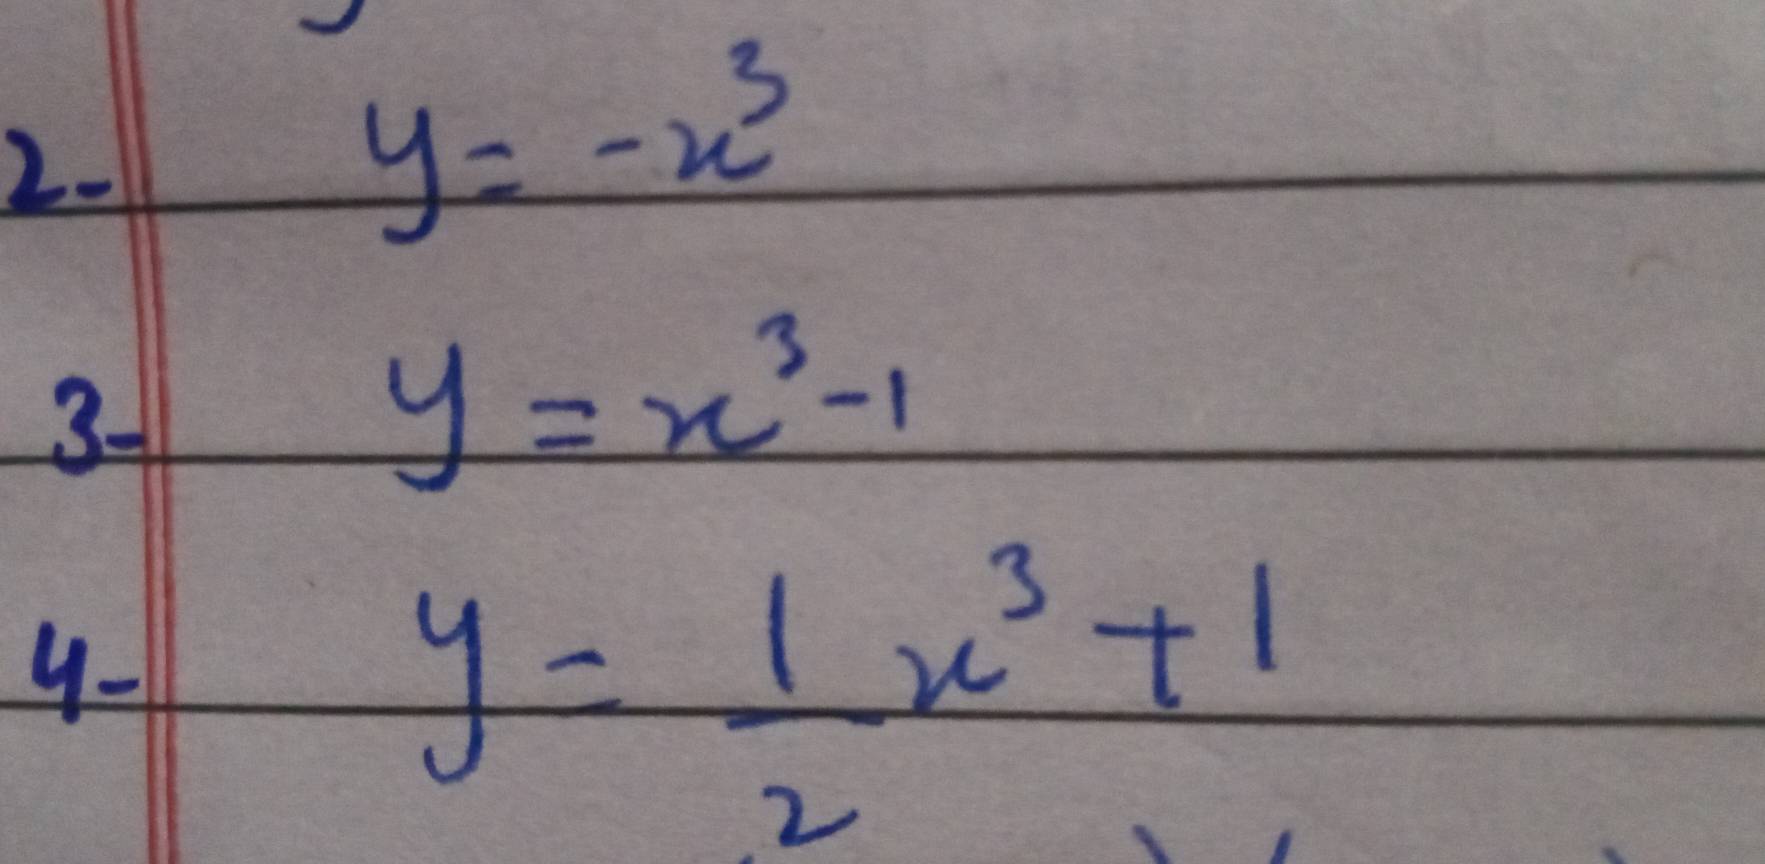 2- y = -x³
3- y = x³ - 1
4- y = 1/2 x³ + 1